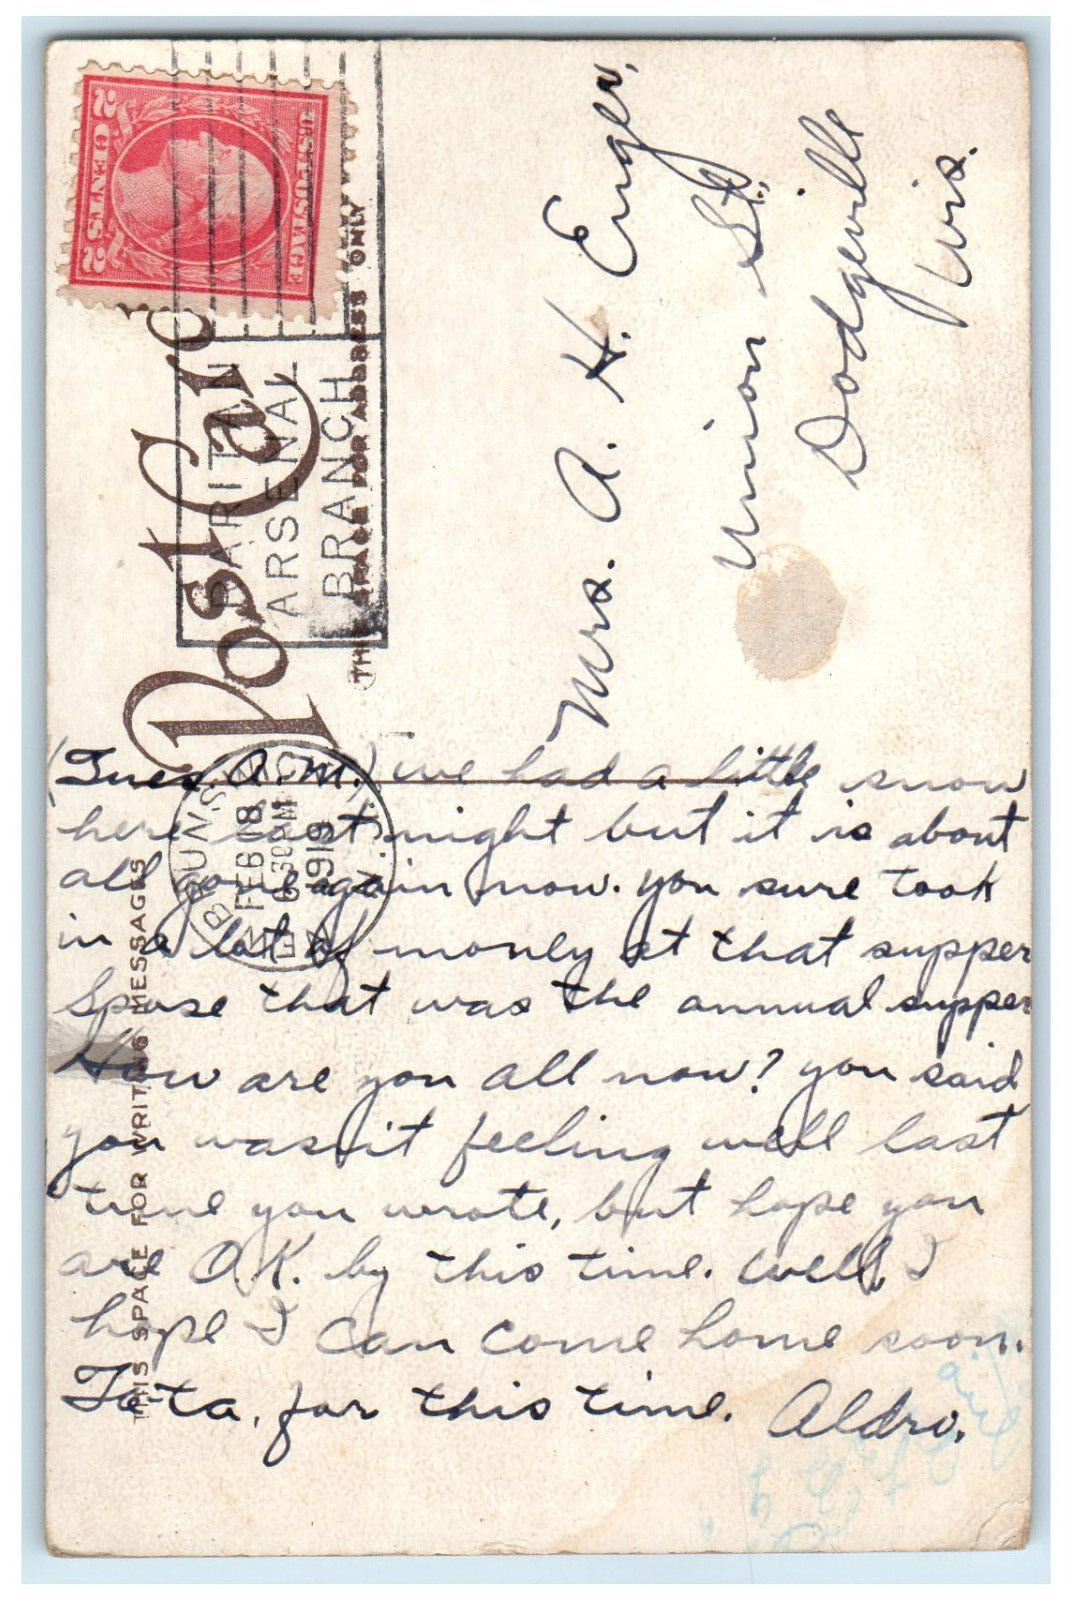 2 CENTS 2
U.S. POSTAGE
Post Card
THIS SPACE FOR ADDRESS ONLY
RARITAN
ARSENAL
BRANCH
FEB 18
630PM
1919
Mrs. A. H. Enger,
Union St.,
Dodgeville
Wis.
THIS SPACE FOR WRITING MESSAGES
(Tues A.M.) we had a little snow
here last night but it is about
all gone again now. you sure took
in a lot of money at that supper
Spose that was the annual supper
How are you all now? you said
you wasn't feeling well last
time you wrote, but hope you
are O.K. by this time. Well, I
hope I can come home soon.
Ta-ta, for this time. Aldro.